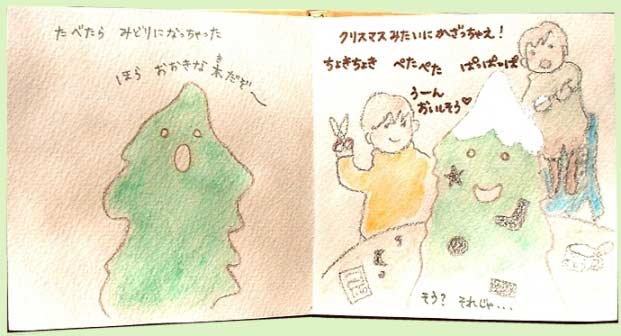 たべたら みどりになっちゃった
ほら おおきな木だぞ〜
き
クリスマスみたいにかざっちゃえ!
ちょきちょき ぺたぺた ぱっぱっぱ
うーん
おいしそう♡
そう? それじゃ...